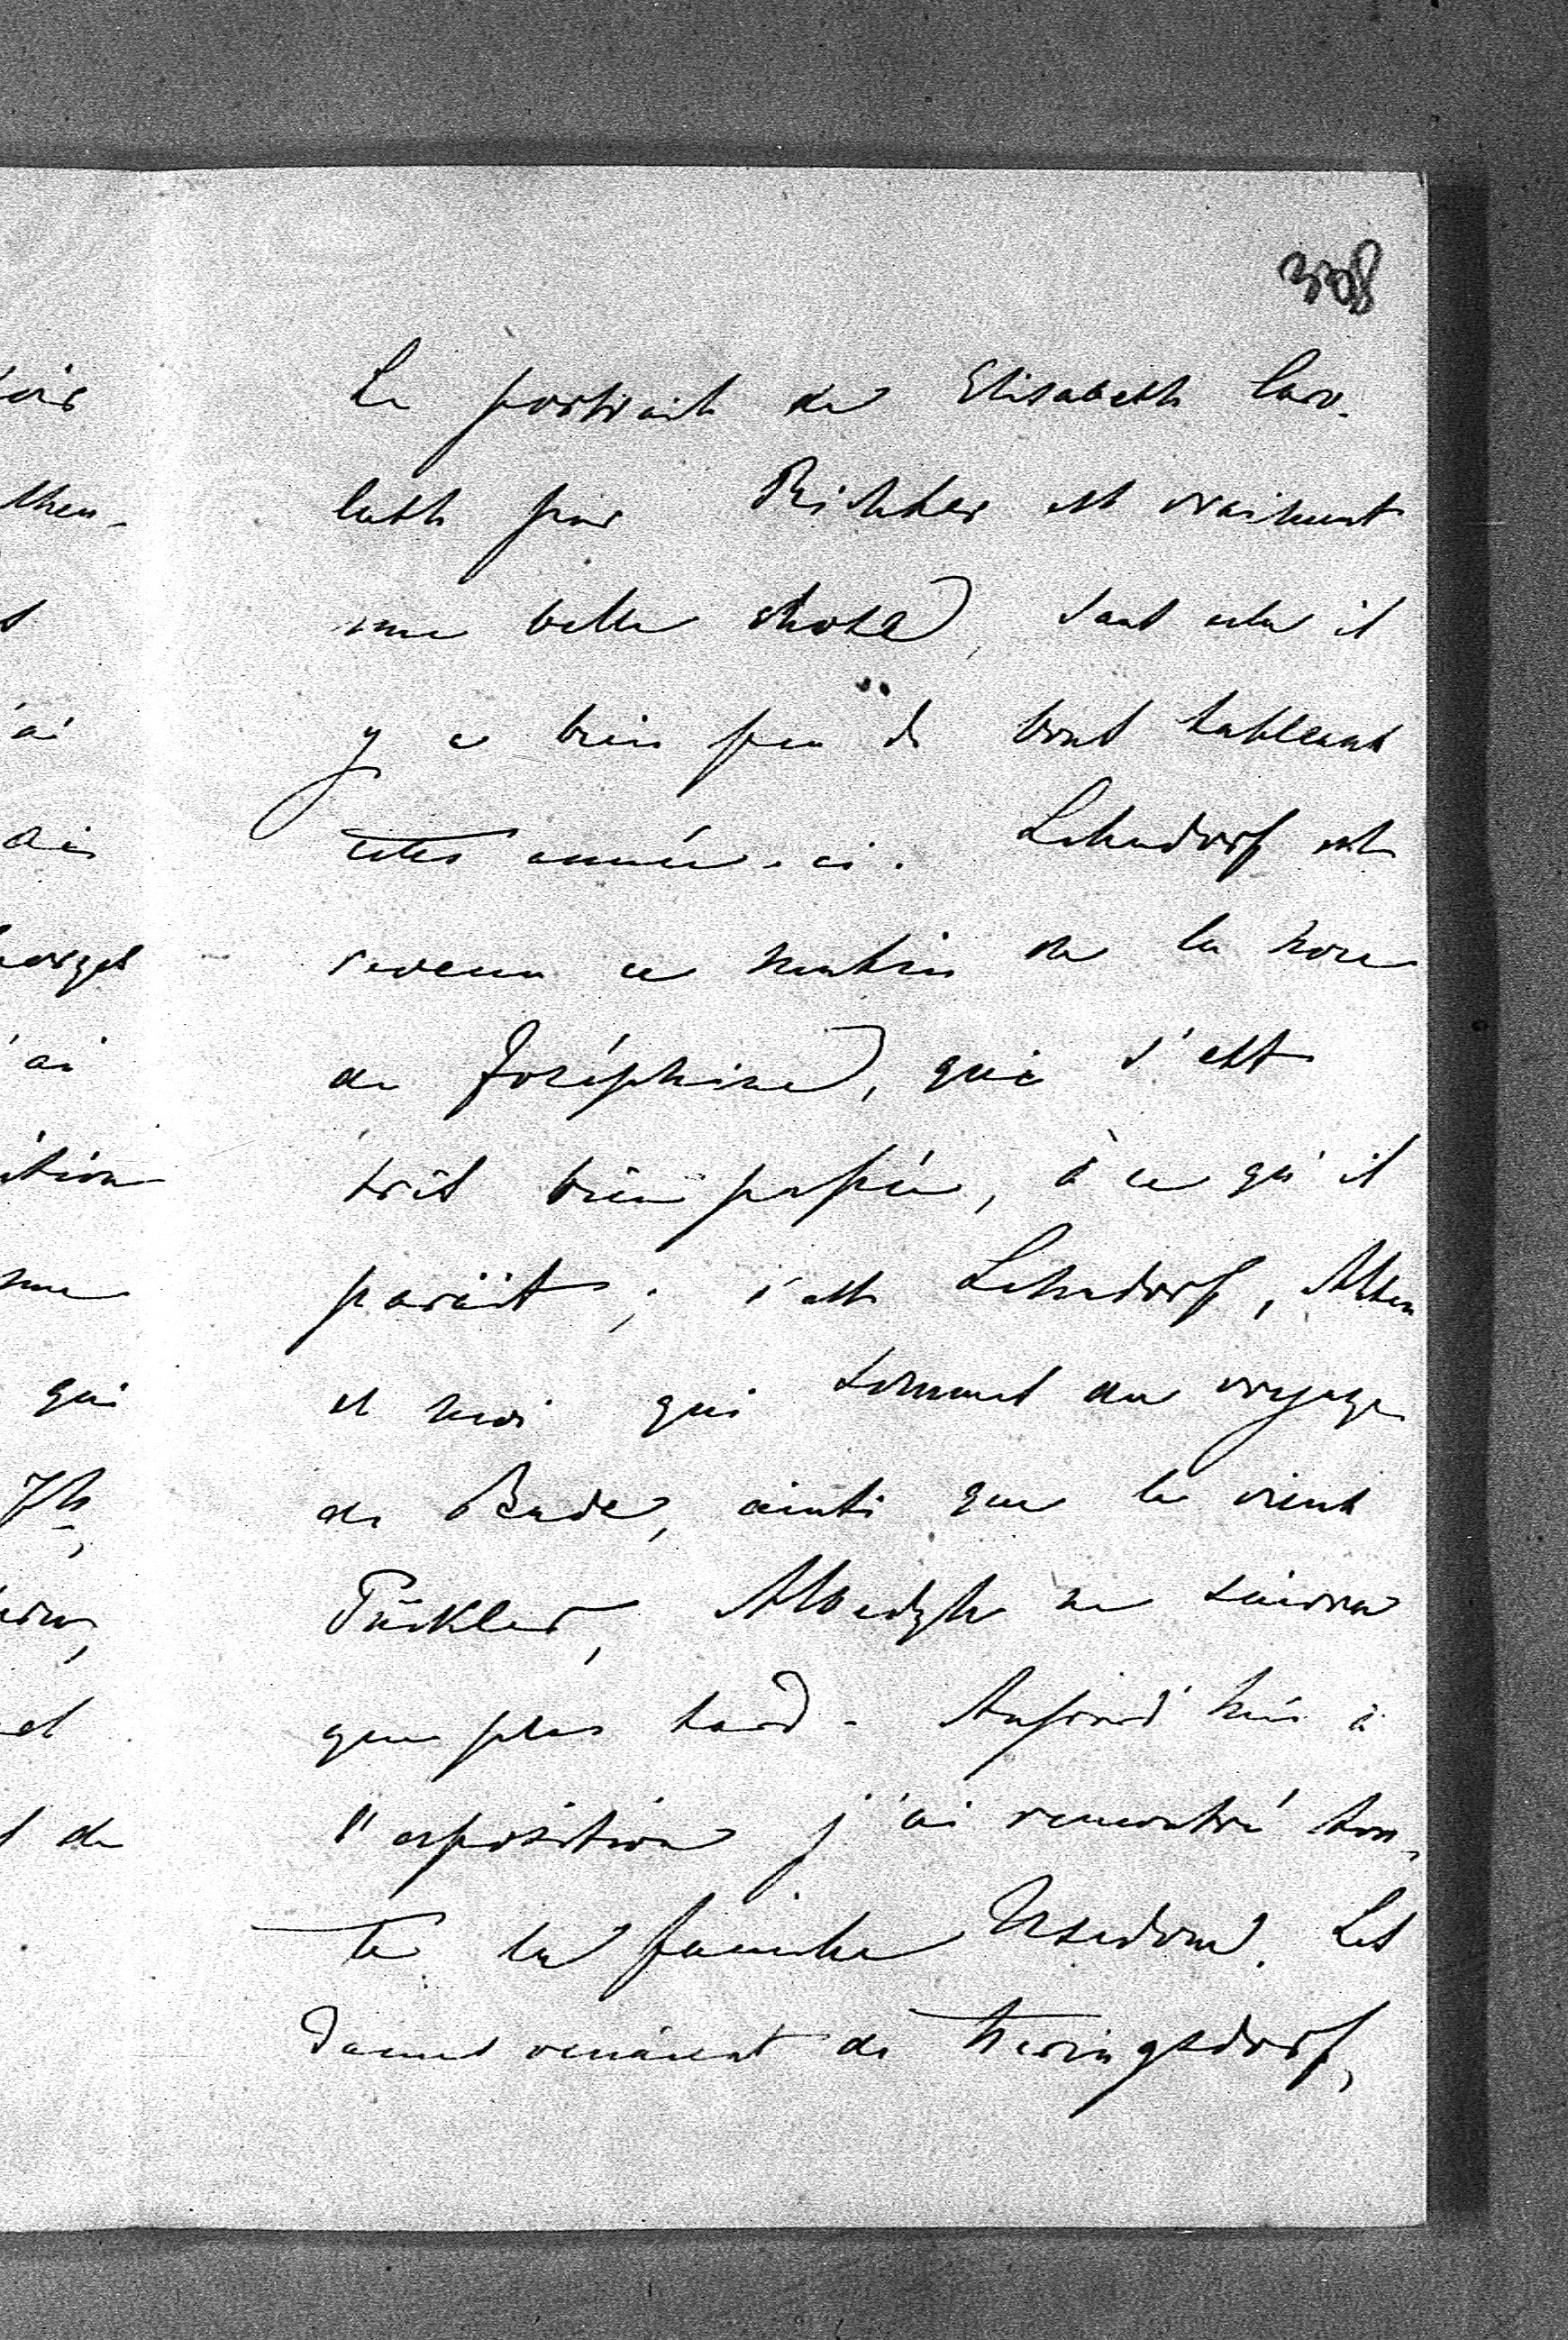 308
Le portrait de Elisabeth Car-
lath par Richter est vraiment
une belle chose, sans cela il
y a bien peu de bons tableaux
cette année-ci. Lehndorf est
revenu ce matin de la noce
de Joséphine, qui s'est
très bien passée, à ce qu'il
parait; c'est Lehndorf, Alten
et moi qui sommes du voyage
de Bade, ainsi que le vieux
Pückler, Albedyll ne suivra
que plus tard. Aujourd'hui à
l'exposition j'ai rencontré tou-
te la famille Usedom. Les
dames venaient de Heringsdorf,
oir
then-
s
'ai
ais
'ai
ition
me
qui
7h,
et
s de